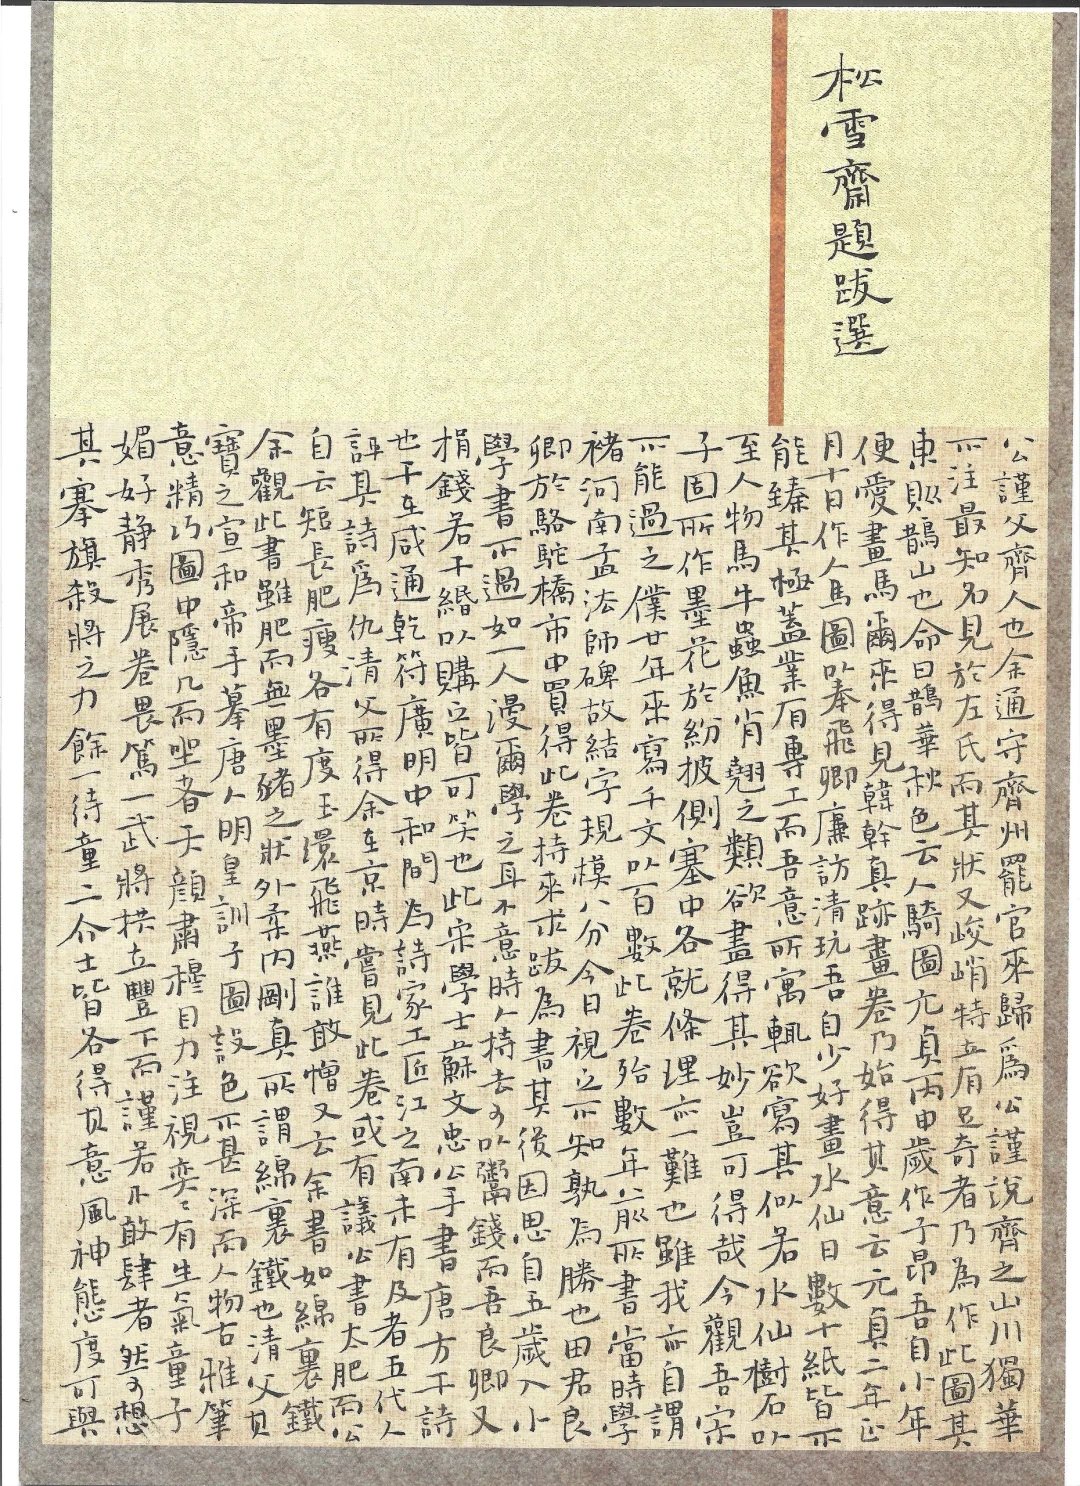 松雪齋題跋選
公謹父齊人也余通守齊州罷官來歸爲公謹說齊之山川獨華
不注最知名見於左氏而其狀又峻峭特立有足奇者乃為作此圖其
東則鵲山也命曰鵲華秋色云人騎圖元貞丙申歲作子昂吾自小年
便愛畫馬爾來得見韓幹真跡畫卷乃始得其意云元貞二年正
月十日作人馬圖以奉飛卿廉訪清玩吾自少好畫水仙日數十紙皆不
能臻其極蓋業有專工而吾意所寓輒欲寫其似若水仙樹石以
至人物馬牛蟲魚肖翹之類欲盡得其妙豈可得哉今觀吾宗
子固所作墨花於紛披側塞中各就條理亦一難也雖我亦自謂
不能過之僕廿年來寫千文以百數此卷殆數年前所書當時學
褚河南孟法師碑故結字規模八分今日視之不知孰為勝也田君良
卿於駱駝橋市中買得此卷持來求跋為書其後因思自五歲入小
學書不過如一人漫爾學之耳不意時人持去可以鬻錢而吾良卿又
捐錢若干緡以購之皆可笑也此宋學士蘇文忠公手書唐方干詩
也干在咸通乾符廣明中和間為詩家工匠江之南未有及者五代人
詩爲仇清父所得余在京時嘗見此卷或有議公書太肥而公
自云短長肥瘦各有度玉環飛燕誰敢憎又云余書如綿裹鐵
余觀此書雖肥而無墨豬之狀外柔內剛真所謂綿裹鐵也清父其
寶之宣和帝手摹唐人明皇訓子圖設色不甚深而人物古雅筆
意精巧圖中隱几而坐者天顏肅穆目力注視奕奕有生氣童子
媚好靜秀展卷畏篤一武將拱立豐下而謹若不敢肆者然可想
其搴旗殺將之力餘一待童二介士皆各得其意風神態度可與